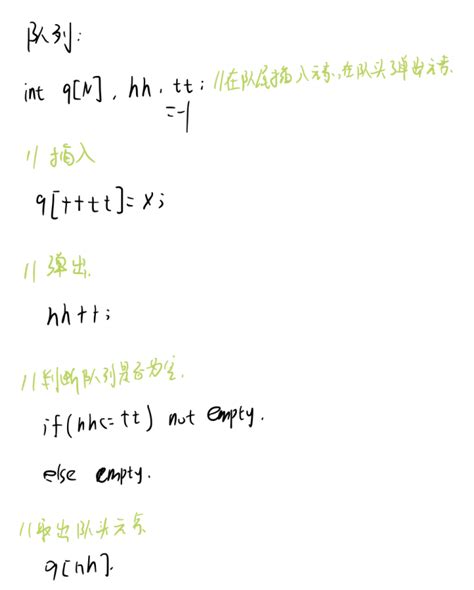 队列:
int q[N], hh, tt; //在队尾插入元素,在队头弹出元素.
=-1
// 插入
q[++tt]=x;
// 弹出.
hh++;
//判断队列是否为空.
if(hh<=tt) not empty.
else empty.
//取出队头元素
q[hh].